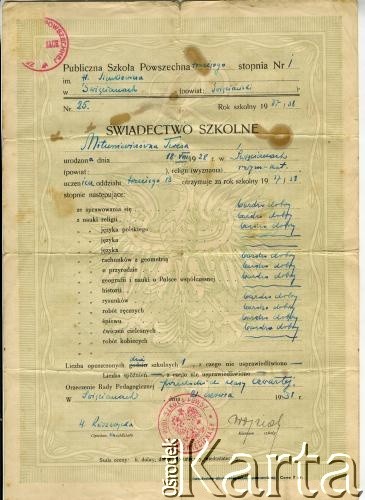 Publiczna Szkoła Powszechna trzeciego stopnia Nr 1
im. H. Sienkiewicza
w Święcianach (powiat: Święciański)
Nr. 25. Rok szkolny 1937/38
ŚWIADECTWO SZKOLNE
Teresa
urodzona dnia 18 VIII 1928 r. w Święcianach
(powiat: ), religii (wyznania) rzym-kat.
uczenica oddziału trzeciego B otrzymuje za rok szkolny 1937/38
stopnie następujące:
ze sprawowania się bardzo dobry
z nauki religii bardzo dobry
„ języka polskiego bardzo dobry
„ języka
„ języka
„ rachunków z geometrią bardzo dobry
o przyrodzie bardzo dobry
geografii i nauki o Polsce współczesnej bardzo dobry
historii
rysunków bardzo dobry
robót ręcznych bardzo dobry
śpiewu bardzo dobry
ćwiczeń cielesnych bardzo dobry
robót kobiecych
Liczba opuszczonych dni szkolnych 1, z czego nie usprawiedliwiono —
Liczba spóźnień —, z czego nie usprawiedliwiono —
Orzeczenie Rady Pedagogicznej: do klasy czwartej.
w Święcianach dnia 21 czerwca 1938 r.
Opiekun
Kierownik szkoły
Skala oceny: b. dobry, dobry,
ośrodek Karta